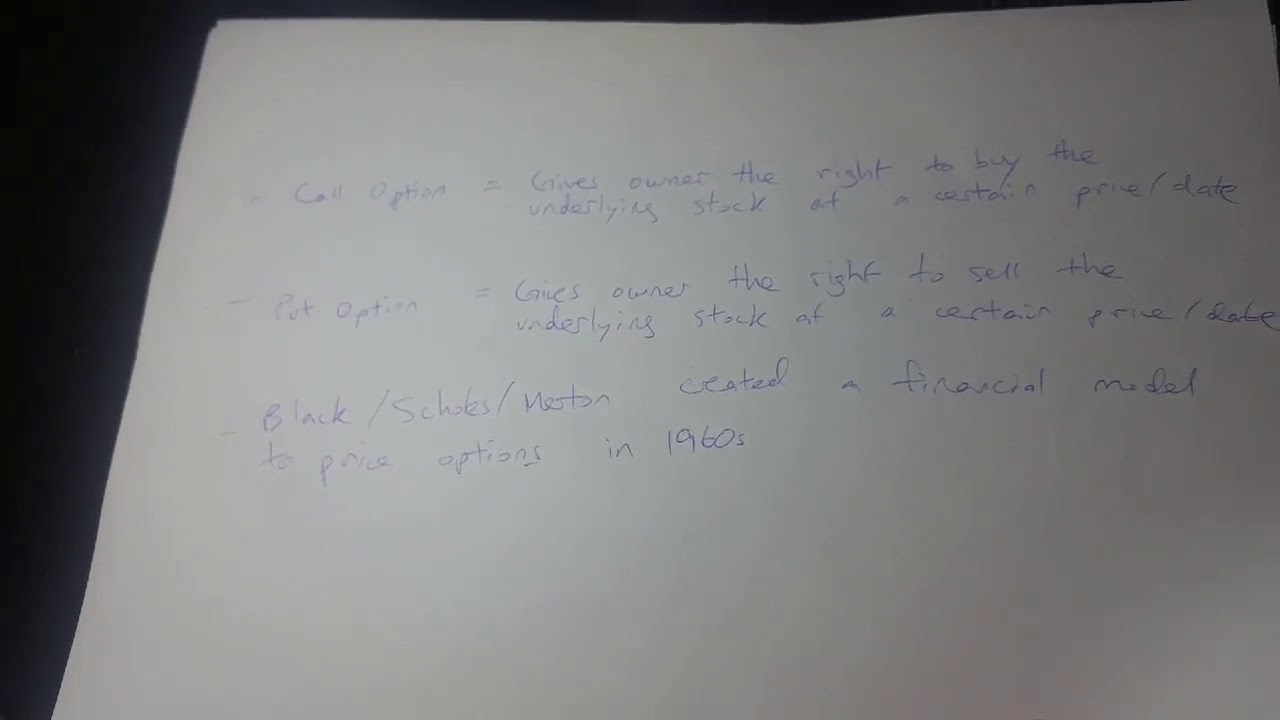 - Call Option = Gives owner the right to buy the
underlying stock at a certain price/date
- Put Option = Gives owner the right to sell the
underlying stock at a certain price/date
- Black/Scholes/Merton created a financial model
to price options in 1960s